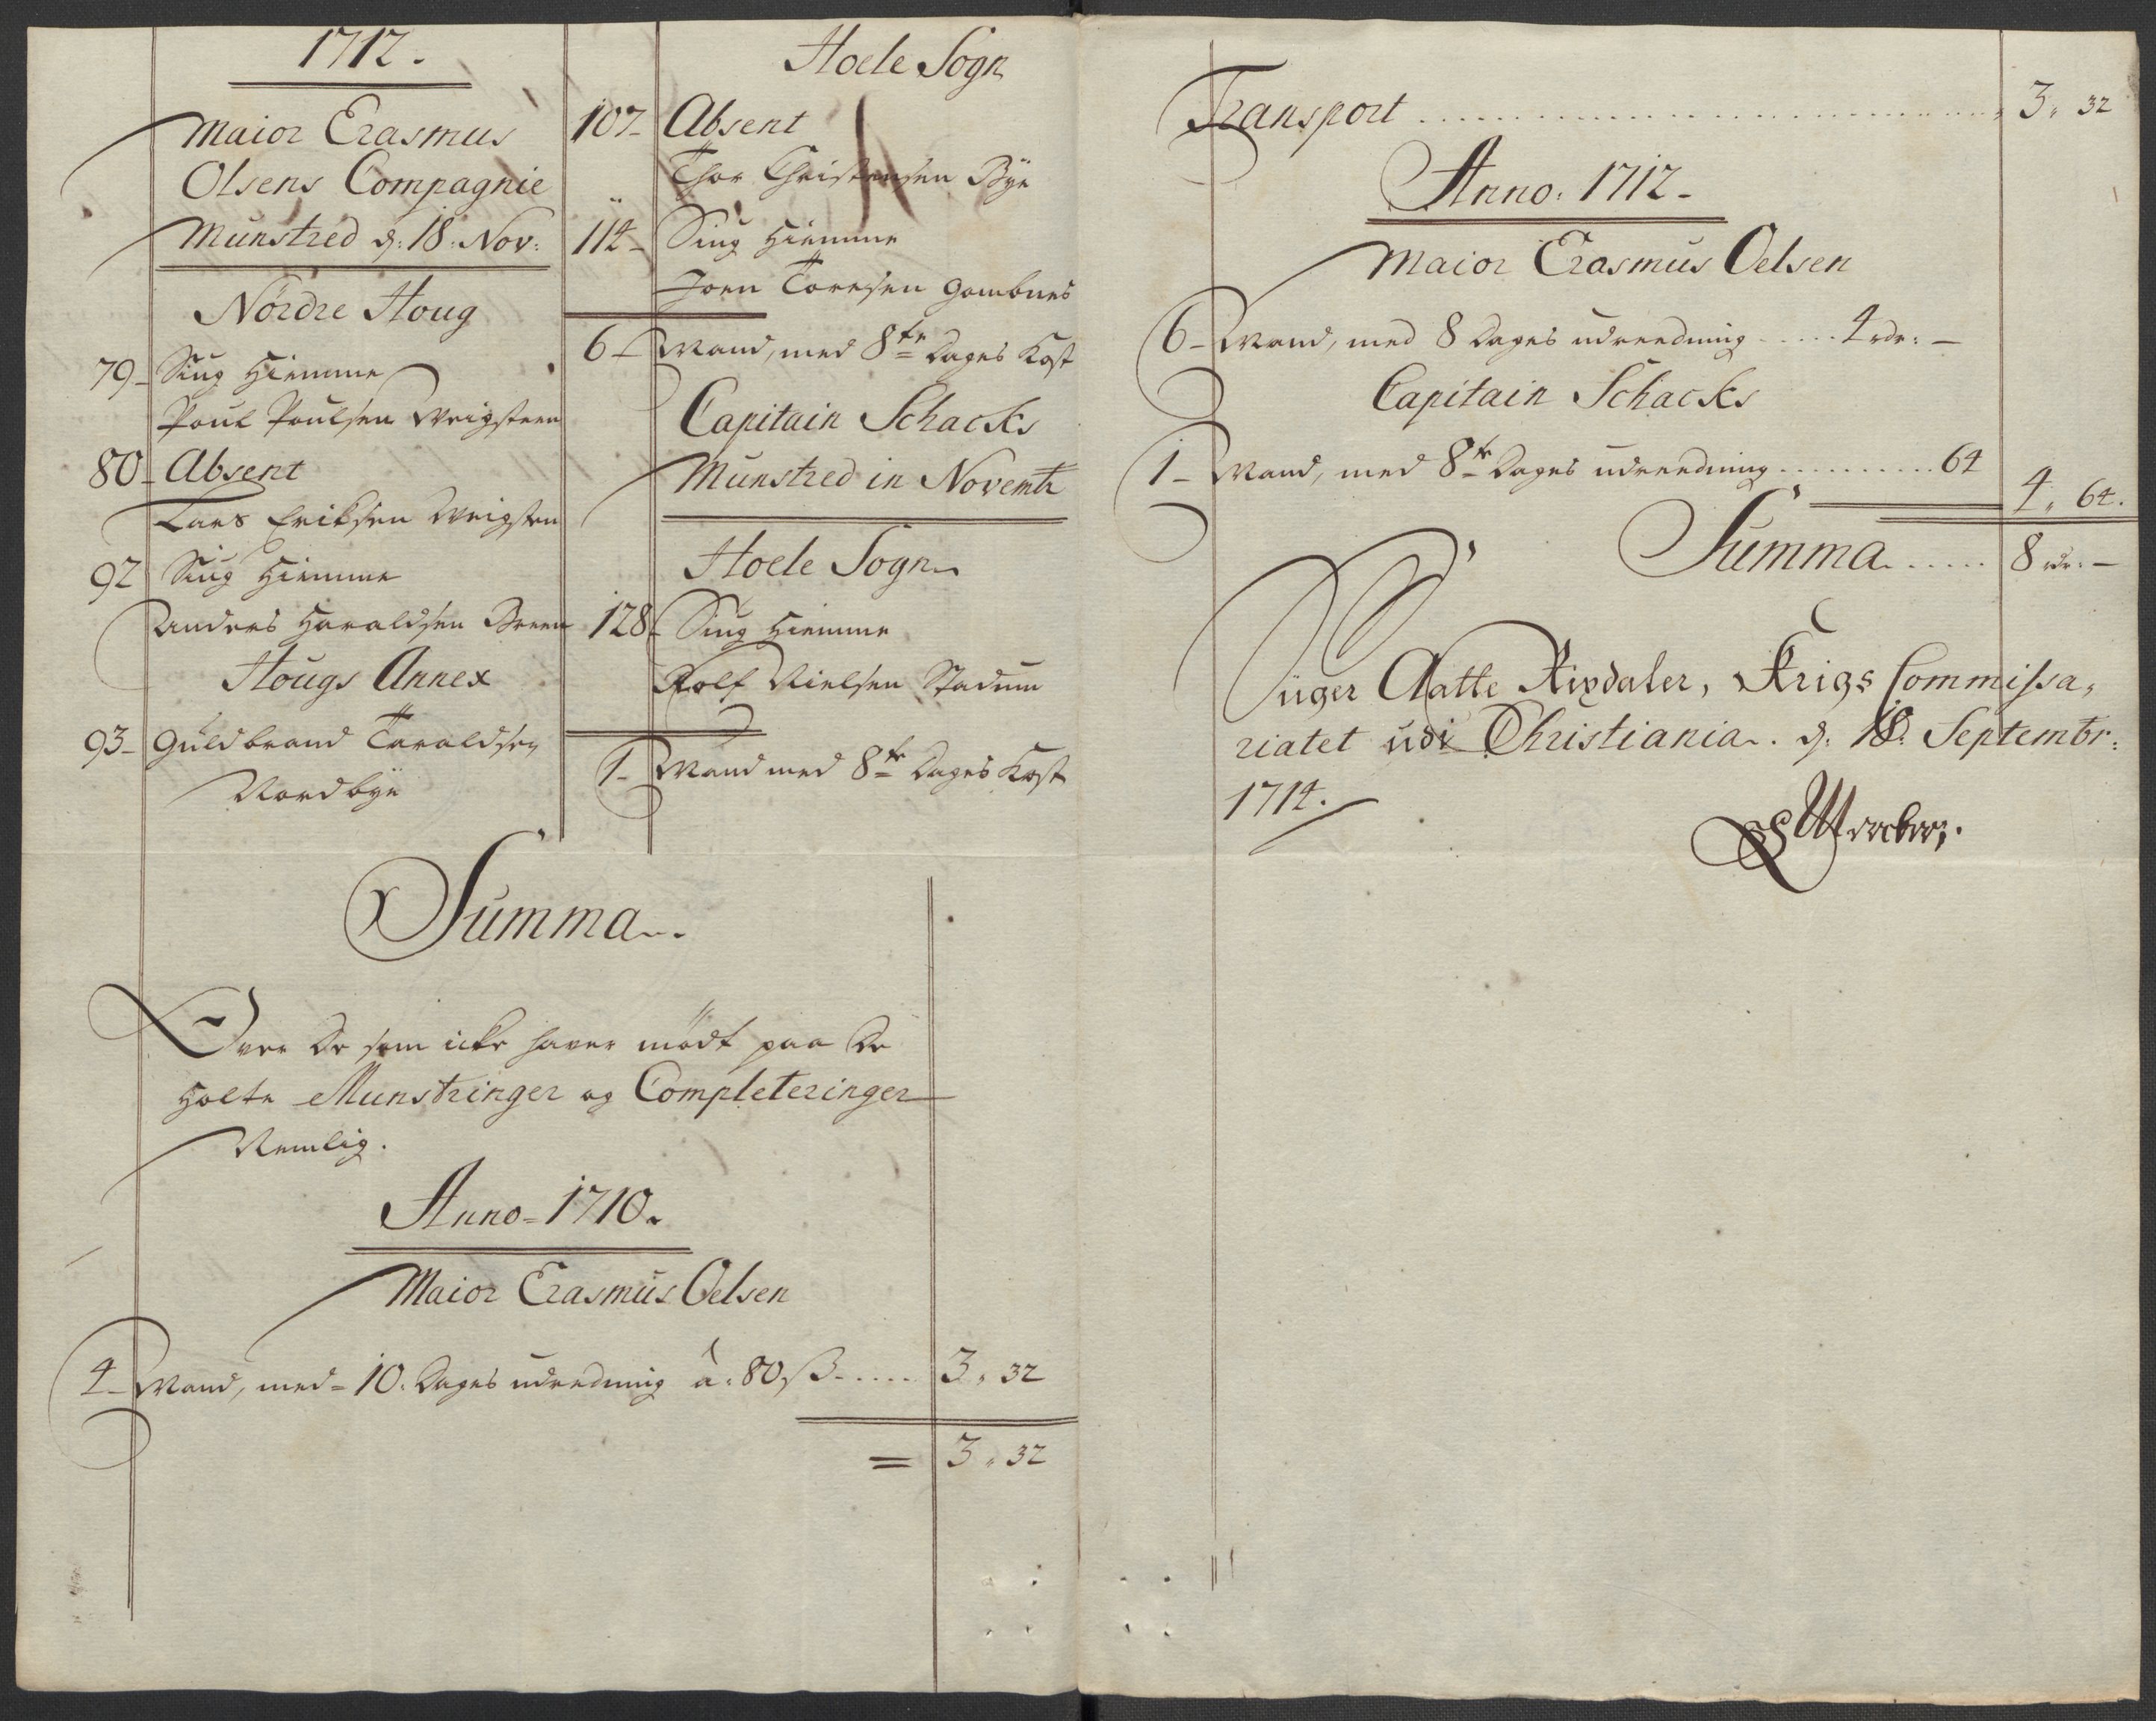 1712.
Maior Erasmus
Olsens Compagnie
Munstred d: 18. Nov:
Nordre Houg
79- Siug Hiemme
Poul Poulsen Veigsteen
80- Absent
Lars Eriksen Veigsten
92 Siug Hiemme
Anders Haraldsen Breen
Hougs Annex
93- Guldbrand Taraldsen
Nordbye
Hoele Sogn
107- Absent
Thor Christensen Bye
114- Siug Hiemme
Joen Toresen Gombnes
6- Mand, med 8te Dages Kost
Capitain Schacks
Munstred in Novembr
Hoele Sogn
128- Siug Hiemme
Rolf Nielsen Stadum
1- Mand med 8te Dages Kost
Summa.
Over De som icke haver mødt paa De
Holte Munstringer og Completeringer
Nemlig.
Anno = 1710.
Maior Erasmus Oelsen
4- Mand, med = 10. Dages udredning à: 80 ß ..... 3. 32
= 3. 32
Transport ........ 3. 32
Anno. 1712-
Maior Erasmus Oelsen
6- Mand, med 8 Dages udreedning ..... 4 rdr: -
Capitain Schacks
1- Mand, med 8te Dages udreedning .......... 64
4. 64.
Summa ..... 8 rdr: -
Siiger Aatte Rixdaler, Krigs Commissa,
riatet udi Christiania. d: 18. Septembr:
1714.